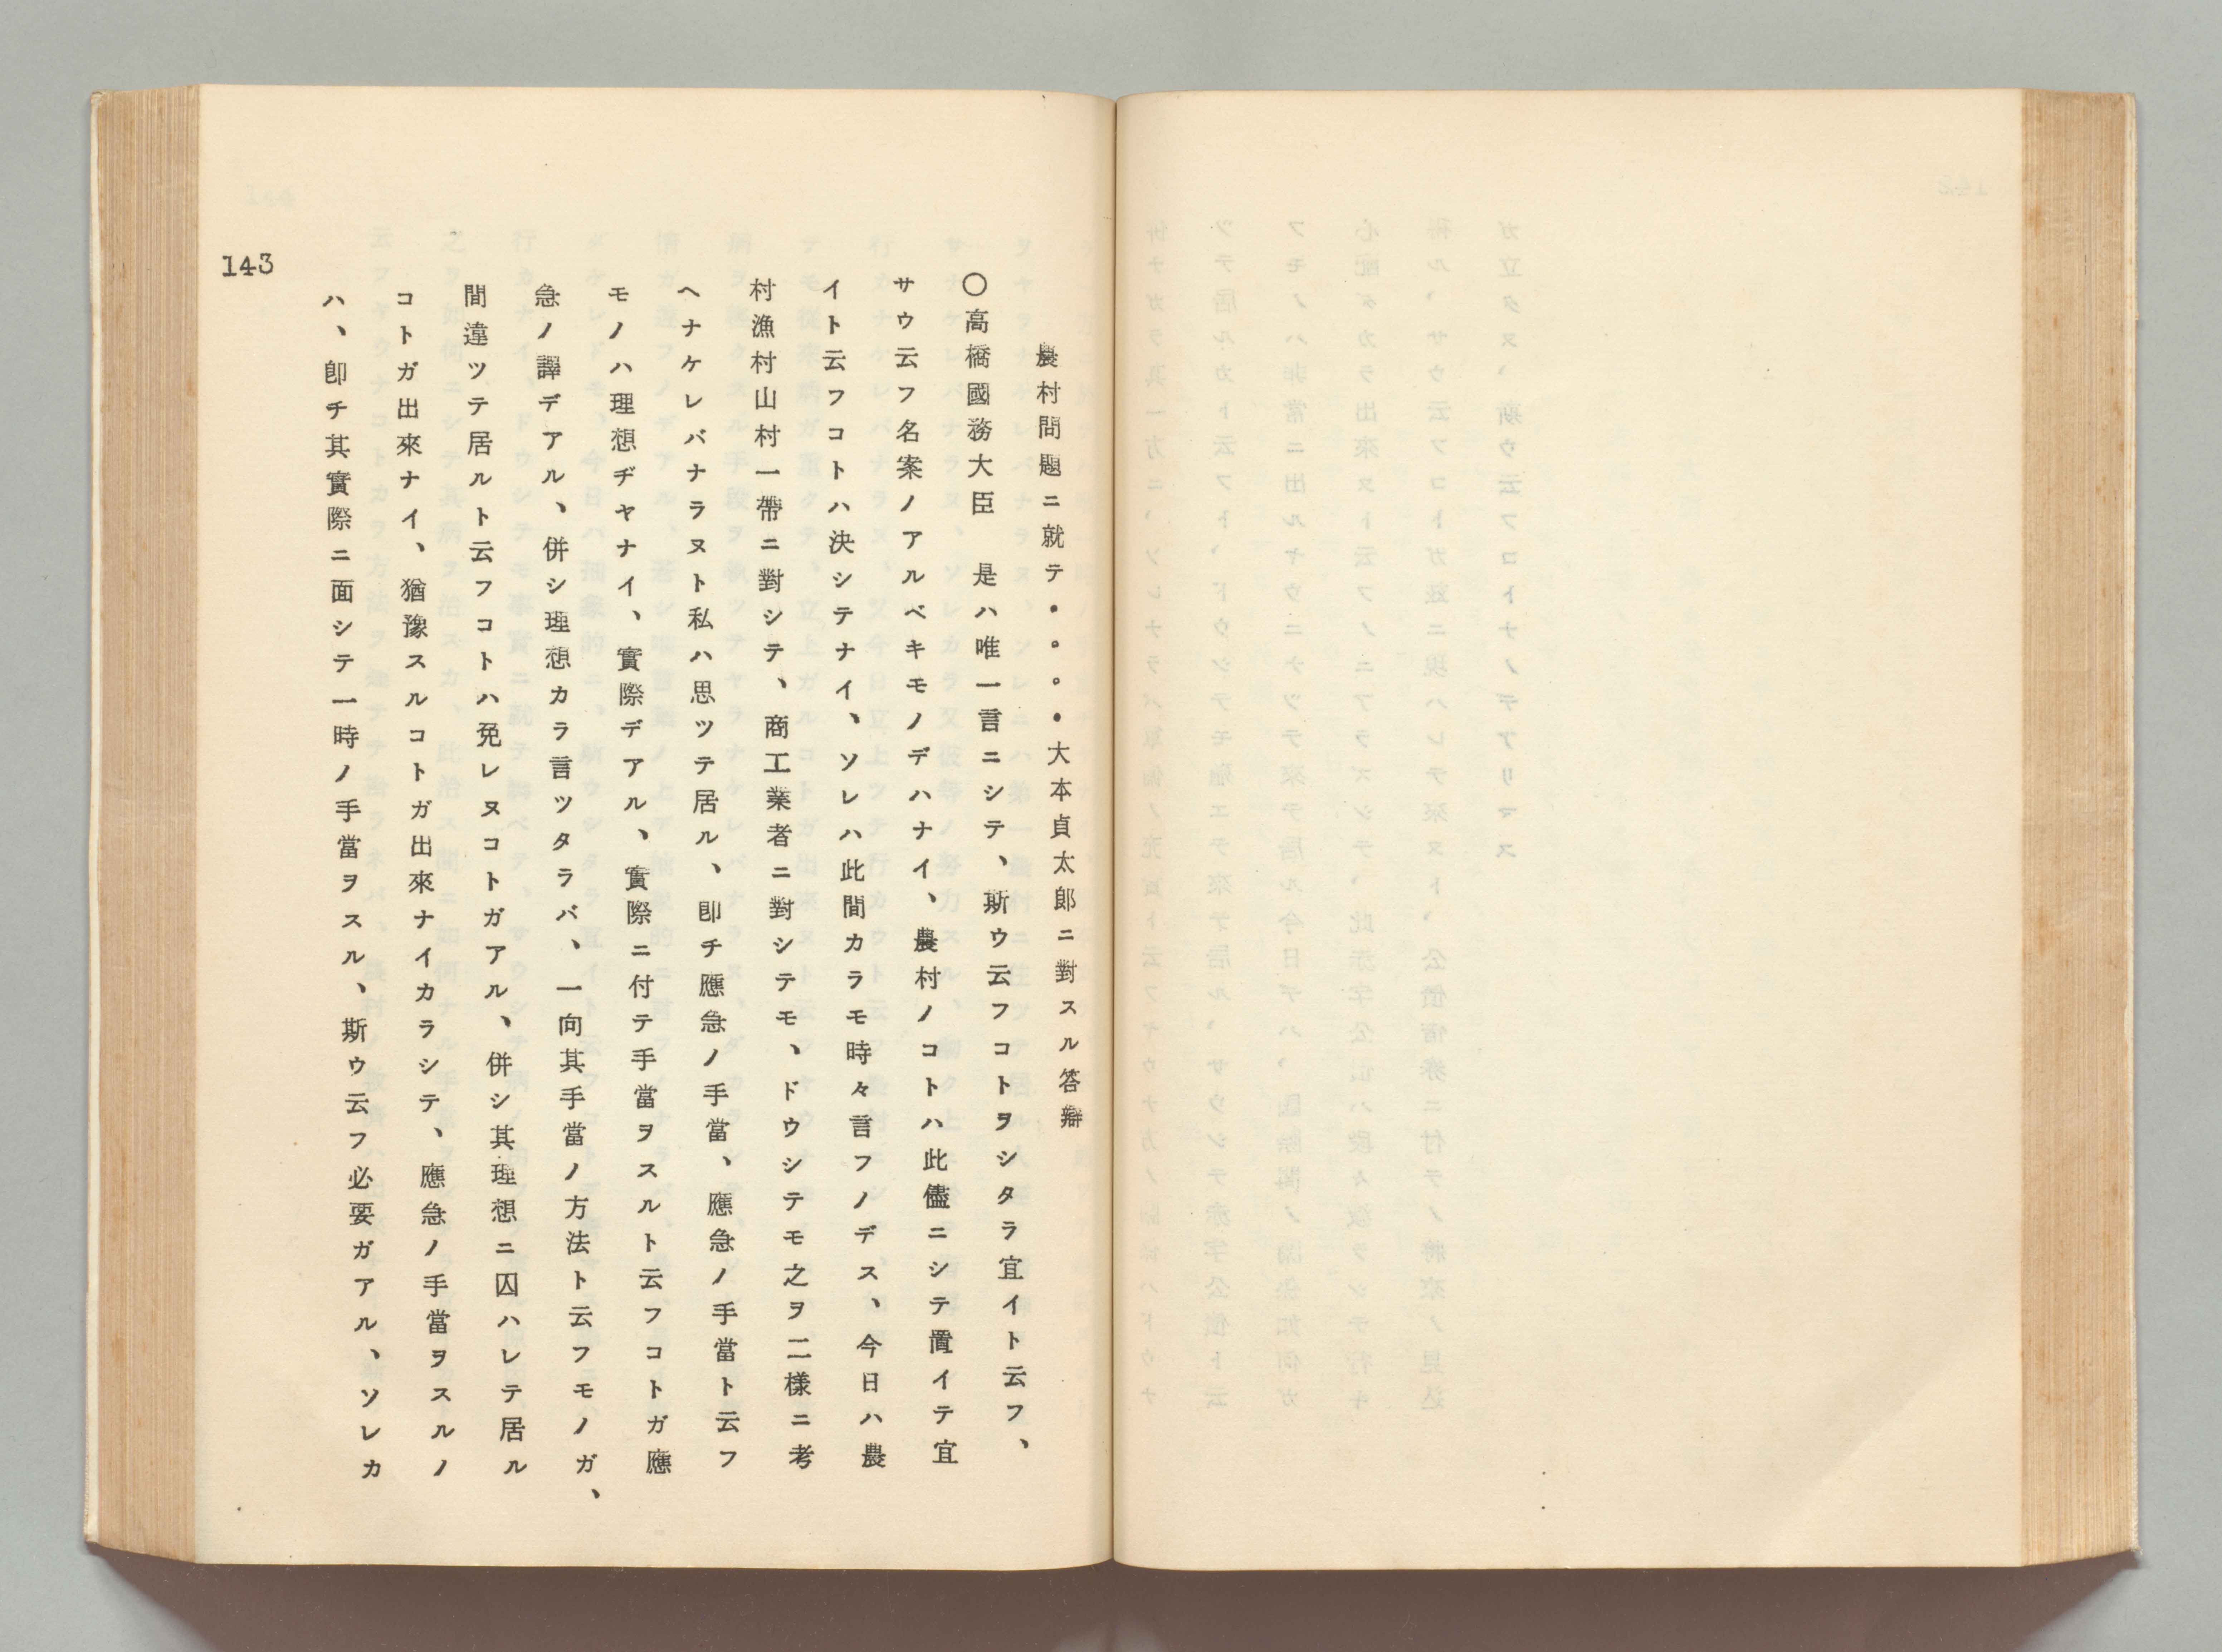 農村問題ニ就テ・。。・大本貞太郎ニ對スル答辯
〇高橋國務大臣　是ハ唯一言ニシテ、斯ウ云フコトヲシタラ宜イト云フ、
サウ云フ名案ノアルベキモノデハナイ、農村ノコトハ此儘ニシテ置イテ宜
イト云フコトハ決シテナイ、ソレハ此間カラモ時々言フノデス、今日ハ農
村漁村山村一帶ニ對シテ、商工業者ニ對シテモ、ドウシテモ之ヲ二樣ニ考
ヘナケレバナラヌト私ハ思ツテ居ル、卽チ應急ノ手當、應急ノ手當ト云フ
モノハ理想ヂヤナイ、實際デアル、實際ニ付テ手當ヲスルト云フコトガ應
急ノ譯デアル、併シ理想カラ言ツタラバ、一向其手當ノ方法ト云フモノガ、
間違ツテ居ルト云フコトハ免レヌコトガアル、併シ其理想ニ囚ハレテ居ル
コトガ出來ナイ、猶豫スルコトガ出來ナイカラシテ、應急ノ手當ヲスルノ
ハ、卽チ其實際ニ面シテ一時ノ手當ヲスル、斯ウ云フ必要ガアル、ソレカ
143